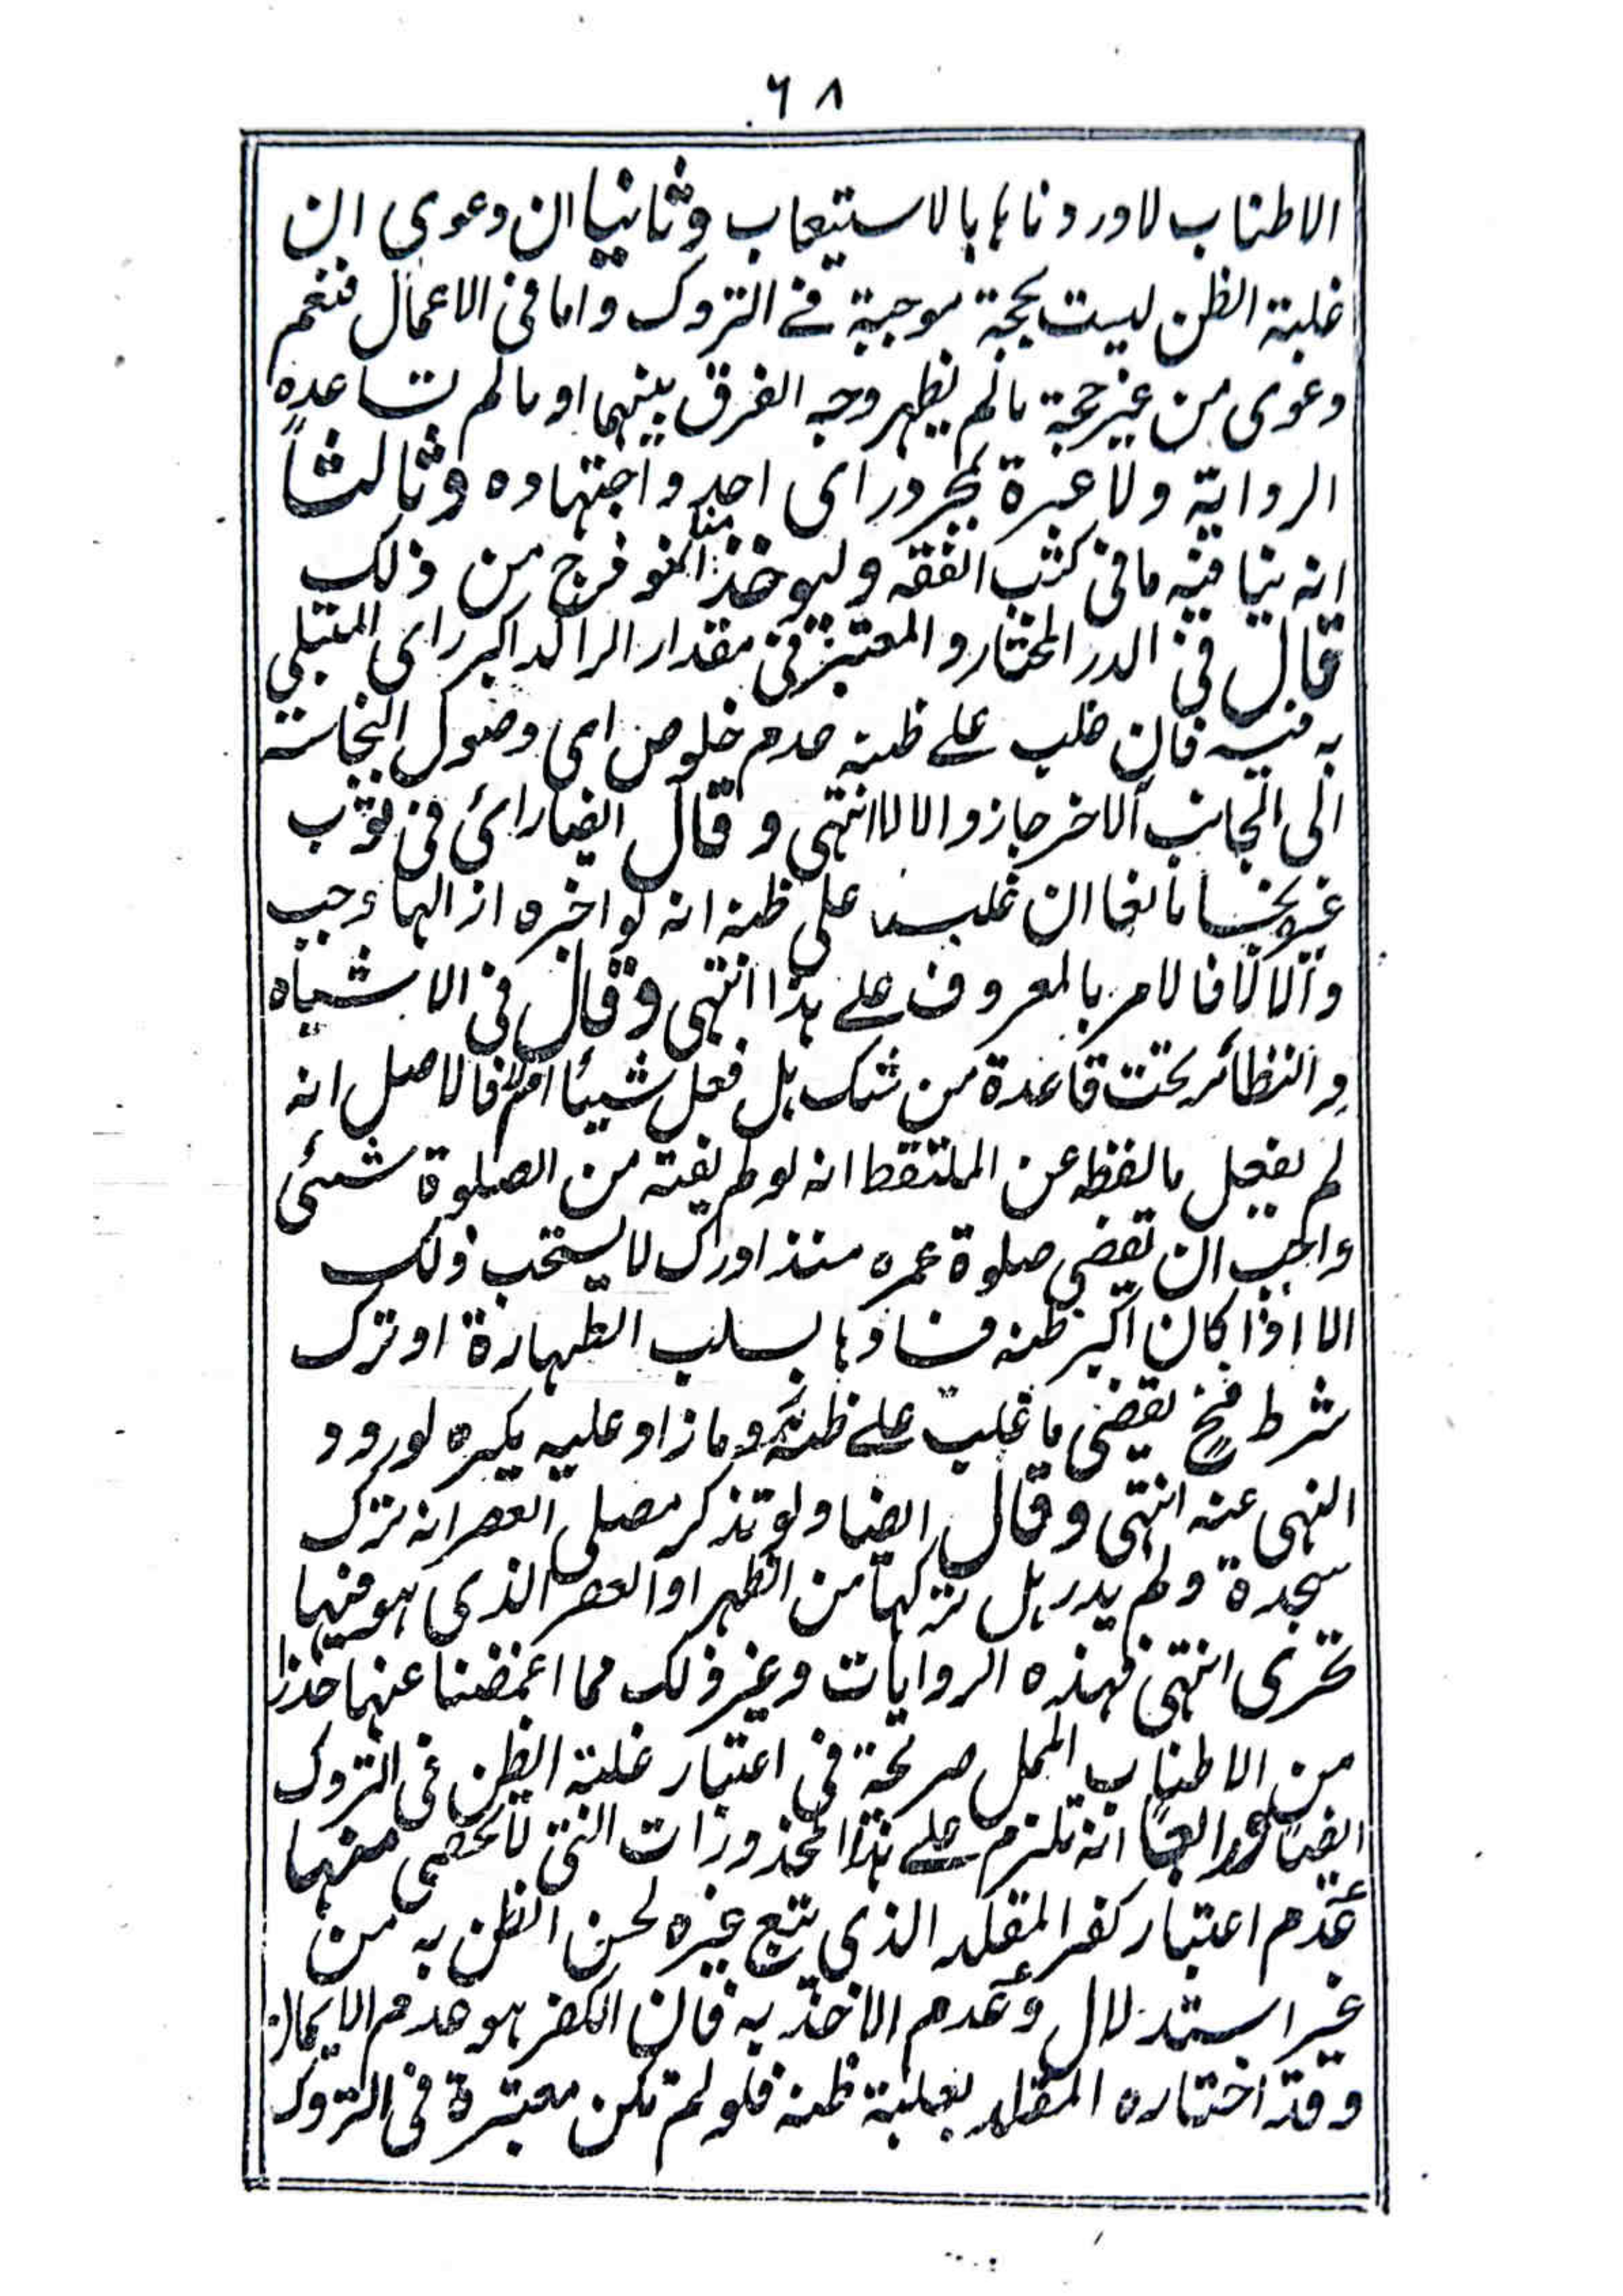 ٦٨
الاطناب لاوردناها بالاستيعاب وثانيا ان دعوى ان
غلبة الظن ليست بحجة موجبة فے التروك واما فى الاعمال فنعم
دعوى من غير حجة مالم يظهر وجه الفرق بينهما او مالم تساعده
الرواية ولا عبرة لمجرد راى احد واجتهاده وثالثاً
انه ينافيه ما فى كتب الفقه وليوخذ منا انموذج من ذلك
قال فى الدر المختار والمعتبر فى مقدار الراكد اكبر راى المبتلى
به فيه فان غلب على ظنه عدم خلوص اى وصول النجاسة
الى الجانب الاخر جاز والا لا انتهى وقال ايضا راى فى ثوب
غيره نجسا مانعا ان غلب على ظنه انه لو اخبره ازالها وجب
والا لا فالامر بالمعروف على هذا انتهى وقال فى الاشباه
والنظائر تحت قاعدة من شك هل فعل شيئا ام لا فالاصل انه
لم يفعل ما لفظه عن الملتقط انه لو لم يفته من الصلوة شئى
واحب ان يقضى صلوة عمره منذ ادرك لا يستحب ذلك
الا اذا كان اكبر ظنه فسادها بسبب الطهارة او ترك
شرط فح يقضى ما غلب على ظنه وما زاد عليه يكره لورود
النهى عنه انتهى وقال ايضا ولو تذكر مصلى العصر انه ترك
سجدة ولم يدر هل تركها من الظهر او العصر الذى هو فيها
تحرى انتهى فهذه الروايات وغير ذلك مما اغمضنا عنها حذرا
من الاطناب الممل صريحة فى اعتبار غلبة الظن فى التروك
ايضا ورابعا انه تلزم على هذا المحذورات التى لا تحصى منها
عدم اعتبار كفر المقلد الذى يتبع غيره لحسن الظن به من
غير استدلال وعدم الاخذ به فان الكفر هو عدم الايمان
وقد اختاره المقلد بغلبة ظنه فلو لم تكن معتبرة فى التروك